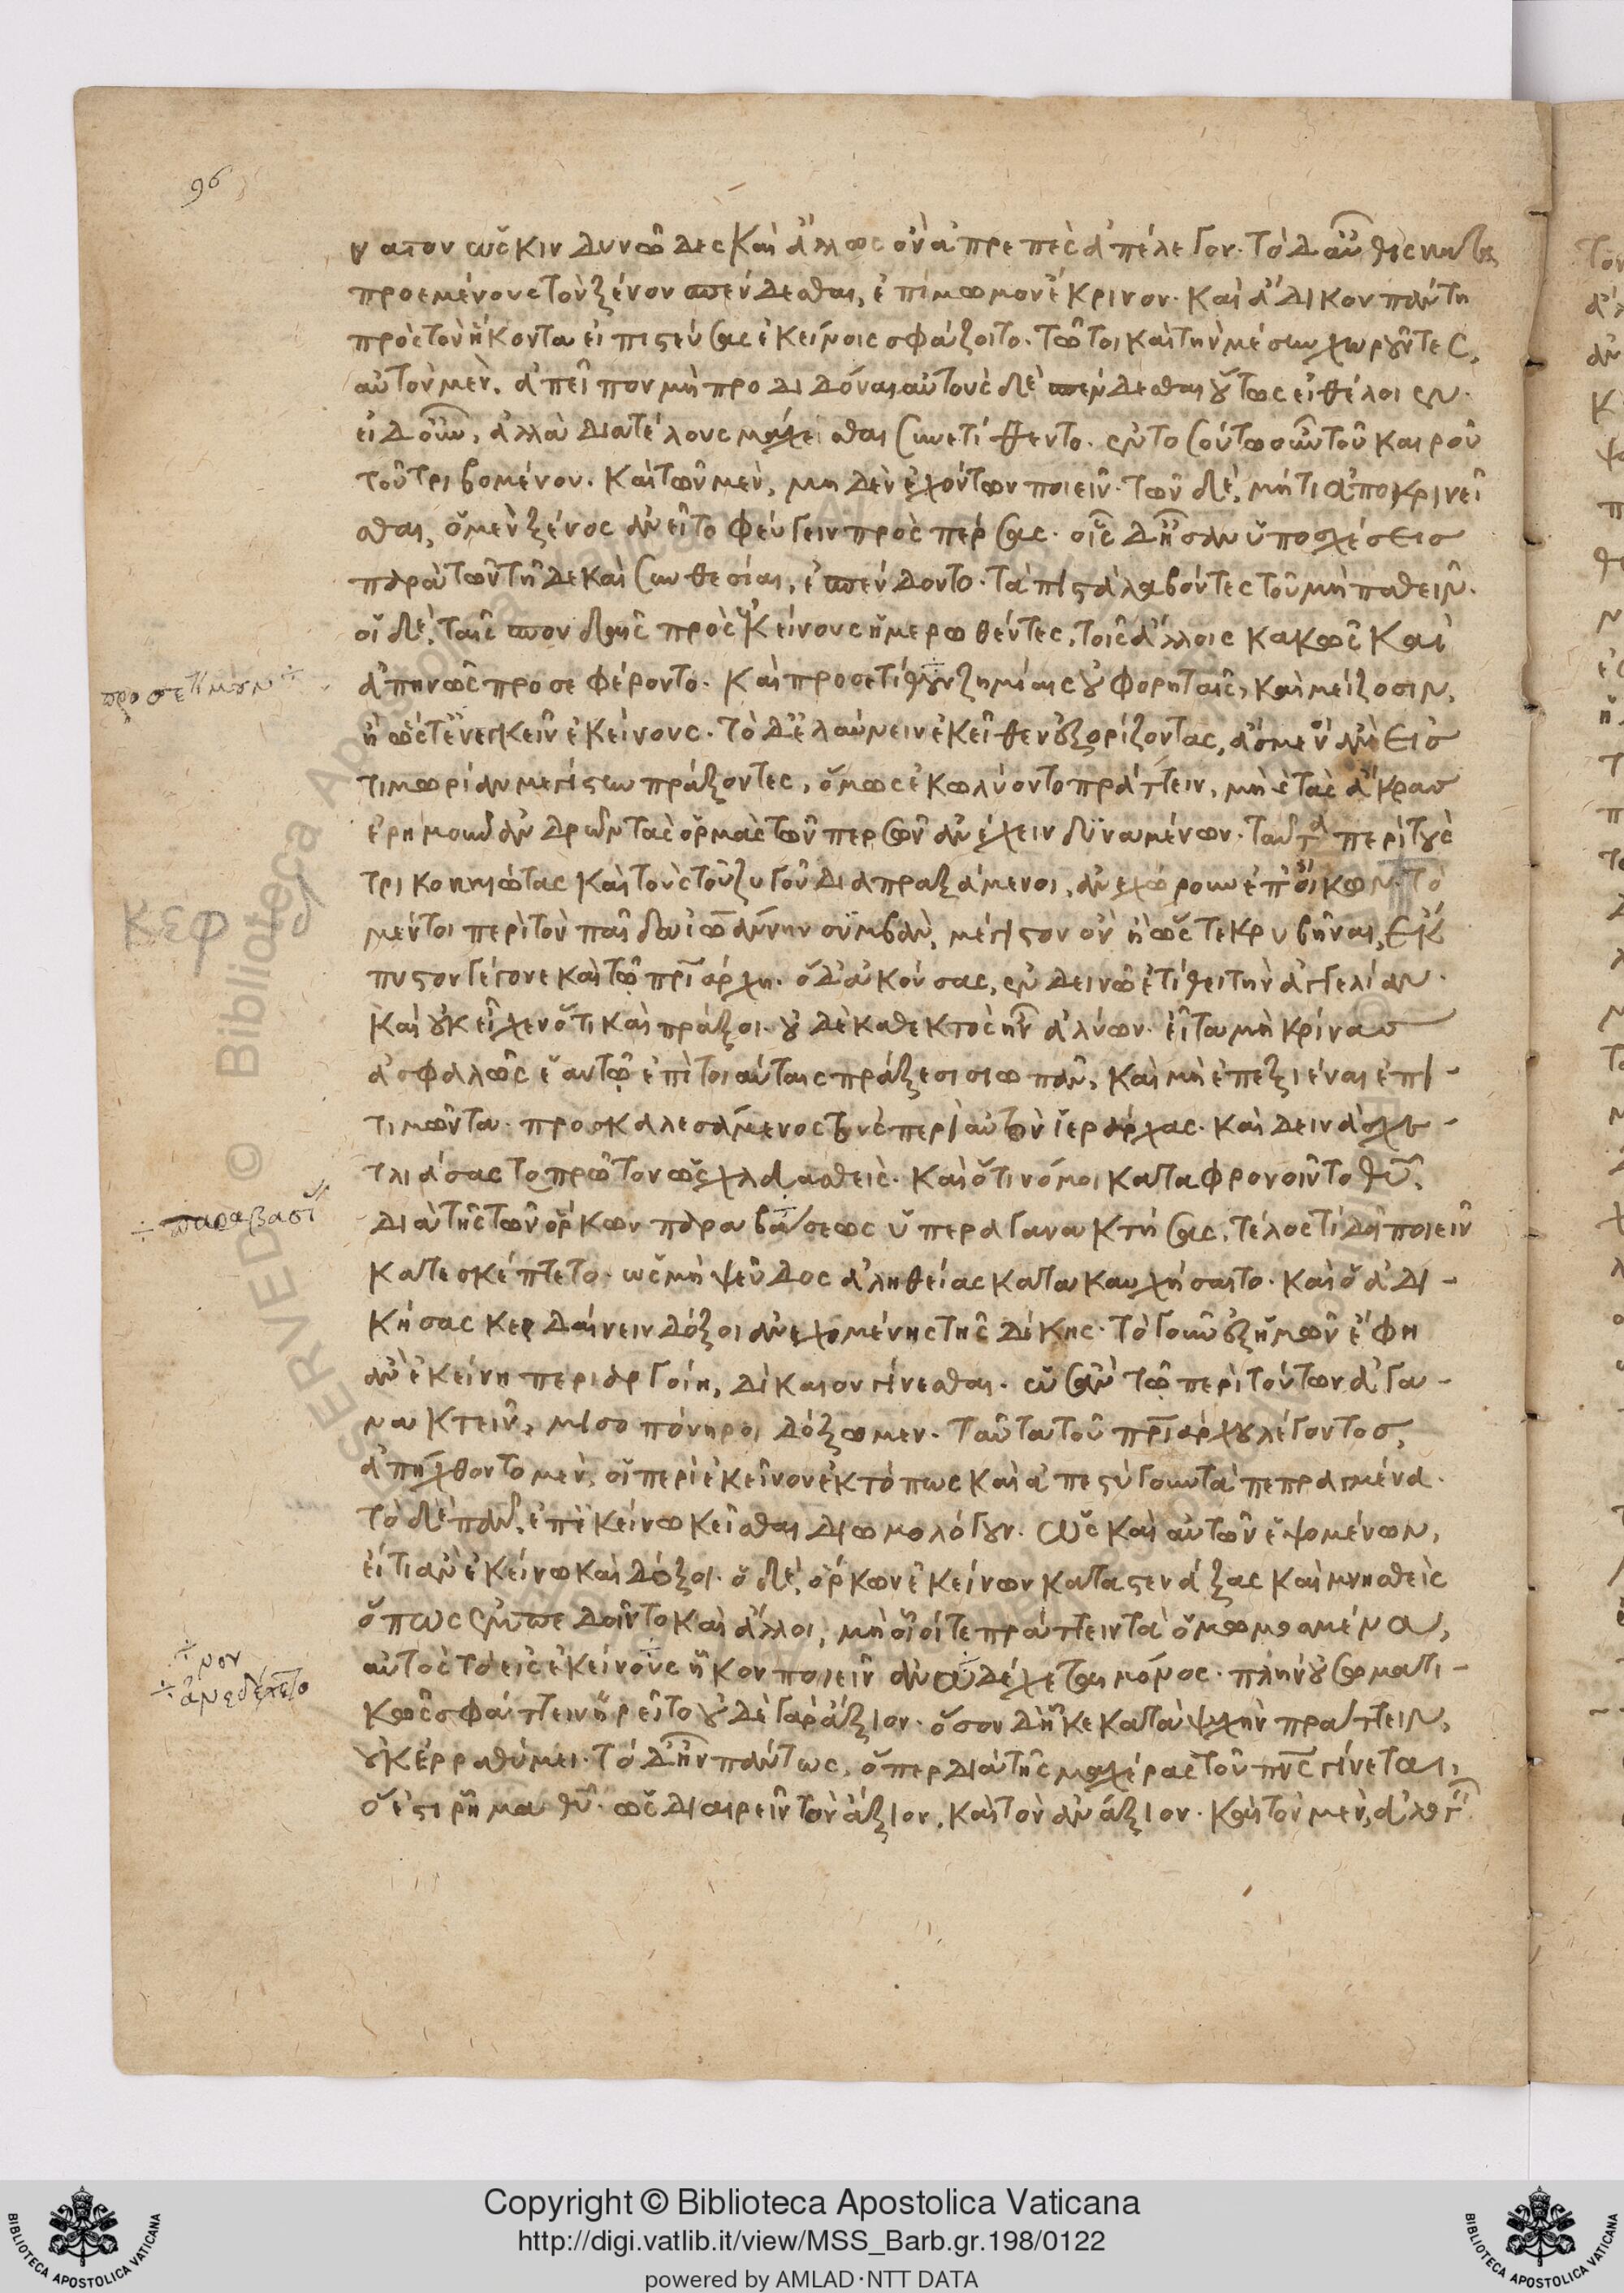 96
νατον ὡς κινδυνῶδες καὶ ἄλλως οὐν ἀπρεπὲς ἀπέλεγον. τὸ δ' αὖθις
προεμένους τὸν ξένον σπένδεσθαι, ἐπίμωμον ἔκρινον. καὶ ἄδικον πάντη
πρὸς τὸν ἥκοντα εἰ πιστεύσας ἐκείνοις σφάζοιτο. τῷ τοι καὶ τὴν μέσην χωροῦντες,
αὐτὸν μὲν, ἀπεῖπον μὴ προδιδόναι αὐτοὺς δὲ σπένδεσθαι οὕτως εἰ θέλοιεν.
εἰ δ' οὖν, ἀλλὰ διὰ τέλους μάχεσθαι συνετίθεντο. ἐν τοσούτῳ οὖν τοῦ καιροῦ
τοῦ τριβομένου. καὶ τῶν μὲν, μηδὲν ἐχόντων ποιεῖν. τῶν δὲ, μήτι ἀποκρινεῖ
σθαι, ὁ μὲν ξένος ἀνεῖτο φεύγειν πρὸς πέρσας. οἷς δ' ἦσαν ὑποσχέσεις
παρὰ τῶν τῇδε καὶ συνθεσίαι, ἐσπένδοντο. τὰ πιστὰ λαβόντες τοῦ μὴ παθεῖν.
οἱ δὲ, ταῖς σπονδαῖς πρὸς ἐκείνους ἡμερωθέντες, τοῖς ἄλλοις κακῶς καὶ
προσετίμουν ÷
ἀπηνῶς προσεφέροντο. καὶ προσετίθουν ζημίαις οὐ φορηταῖς, καὶ μείζοσιν,
ἢ ὥστ' ἐνεγκεῖν ἐκείνους. τὸ δ' ἐλαύνειν ἐκεῖθεν ἐξορίζοντας, ἄσμενοι ἂν εἰς
τιμωρίαν μεγίστην πράξοντες, ὅμως ἐκωλύοντο πράττειν, μὴ ἐς τὰς ἄκρας
ἐρήμουν ἀνδρῶν τὰς ὁρμὰς τῶν περσῶν ἀνέχειν δυναμένων. ταῦτα περὶ τοὺς
τρικοκκιώτας καὶ τοὺς τοῦ ζυγοῦ διαπραξάμενοι, ἀνεχώρουν ἐπ' οἴκων. τὸ
κεφ
μέντοι περὶ τὸν παῖδα ἰωάννην συμβὰν, μέγιστον ὂν ἢ ὥστε κρυβῆναι, ἔκ
πυστον γέγονε καὶ τῷ πριάρχῃ. ὁ δ' ἀκούσας, ἐν δεινῷ ἐτίθει τὴν ἀγγελίαν.
καὶ οὐκ εἶχεν ὅτι καὶ πράξοι. οὐδὲ καθεκτὸς ἦν ἀλύων. εἶτα μὴ κρίνας
ἀσφαλῶς ἑαυτῷ ἐπὶ τοιαύταις πράξεσι σιωπᾶν, καὶ μὴ ἐπεξιέναι ἐπι-
τιμῶντα. προσκαλεσάμενος τοὺς περὶ αὐτὸν ἱεράρχας. καὶ δεινὰ σχε-
τλιάσας τὸ πρῶτον ὡς χλευασθεὶς. καὶ ὅτι νόμοι καταφρονοῖντο θυ,
÷ παραβάσι
διὰ τῆς τῶν ὅρκων παραβάσεως ὑπεραγανακτήσας, τέλος τί δεῖ ποιεῖν
κατεσκέπτετο. ὡς μὴ ψεῦδος ἀληθείας κατακαυχήσαιτο. καὶ ὁ ἀδι-
κήσας κερδαίνειν δόξοι ἀνεχομένης τῆς δίκης. τὸ γοῦν ἐξ ἡμῶν ἔφη
ἂν ἐκείνη περιαργοίη, δίκαιον γίνεσθαι. εὖ σὰν τῷ περὶ τούτων ἀγα-
νακτεῖν, μισοπόνηροι δόξωμεν. ταῦτα τοῦ πριάρχου λέγοντος,
ἀπήχθοντο μὲν, οἱ περὶ ἐκεῖνον ἐκτόπως καὶ ἀπεστύγουν τὰ πεπραγμένα.
τὸ δὲ πᾶν, ἐπ' ἐκείνῳ κεῖσθαι διωμολόγουν. ὡς καὶ αὐτῶν ἑψομένων,
εἴ τι ἂν ἐκείνῳ καὶ δόξοι. ὁ δὲ, ὅρκων ἐκείνων κατασενάξας καὶ μνησθεὶς
ὅπως ἐνσπεδοῖντο καὶ ἄλλοι, μὴ οἷοί τε πράττειν τὰ ὀμωμοσμένα,
÷ νον
÷ ἀνεδέχετο
αὐτὸς τὸ εἰς ἐκείνους ἧκον ποιεῖν ἀναδέχεται μόνος. πλὴν οὐ σωματι-
κῶς σφάττειν ᾑρεῖτο οὐδὲ γὰρ ἄξιον. ὅσον δ' ἧκε κατὰ ψυχὴν πράττειν,
οὐκ ἐρραθύμει. τὸ δ' ἦν πάντως, ὅπερ διὰ τῆς μαχαίρας τοῦ πνς γίνεται,
ὅ ἐστι ῥῆμα θυ. ὡς διαιρεῖν τὸν ἄξιον, καὶ τὸν ἀνάξιον. καὶ τὸν μὲν,
Copyright © Biblioteca Apostolica Vaticana
http://digi.vatlib.it/view/MSS_Barb.gr.198/0122
powered by AMLAD·NTT DATA
BIBLIOTECA APOSTOLICA VATICANA
BIBLIOTECA APOSTOLICA VATICANA